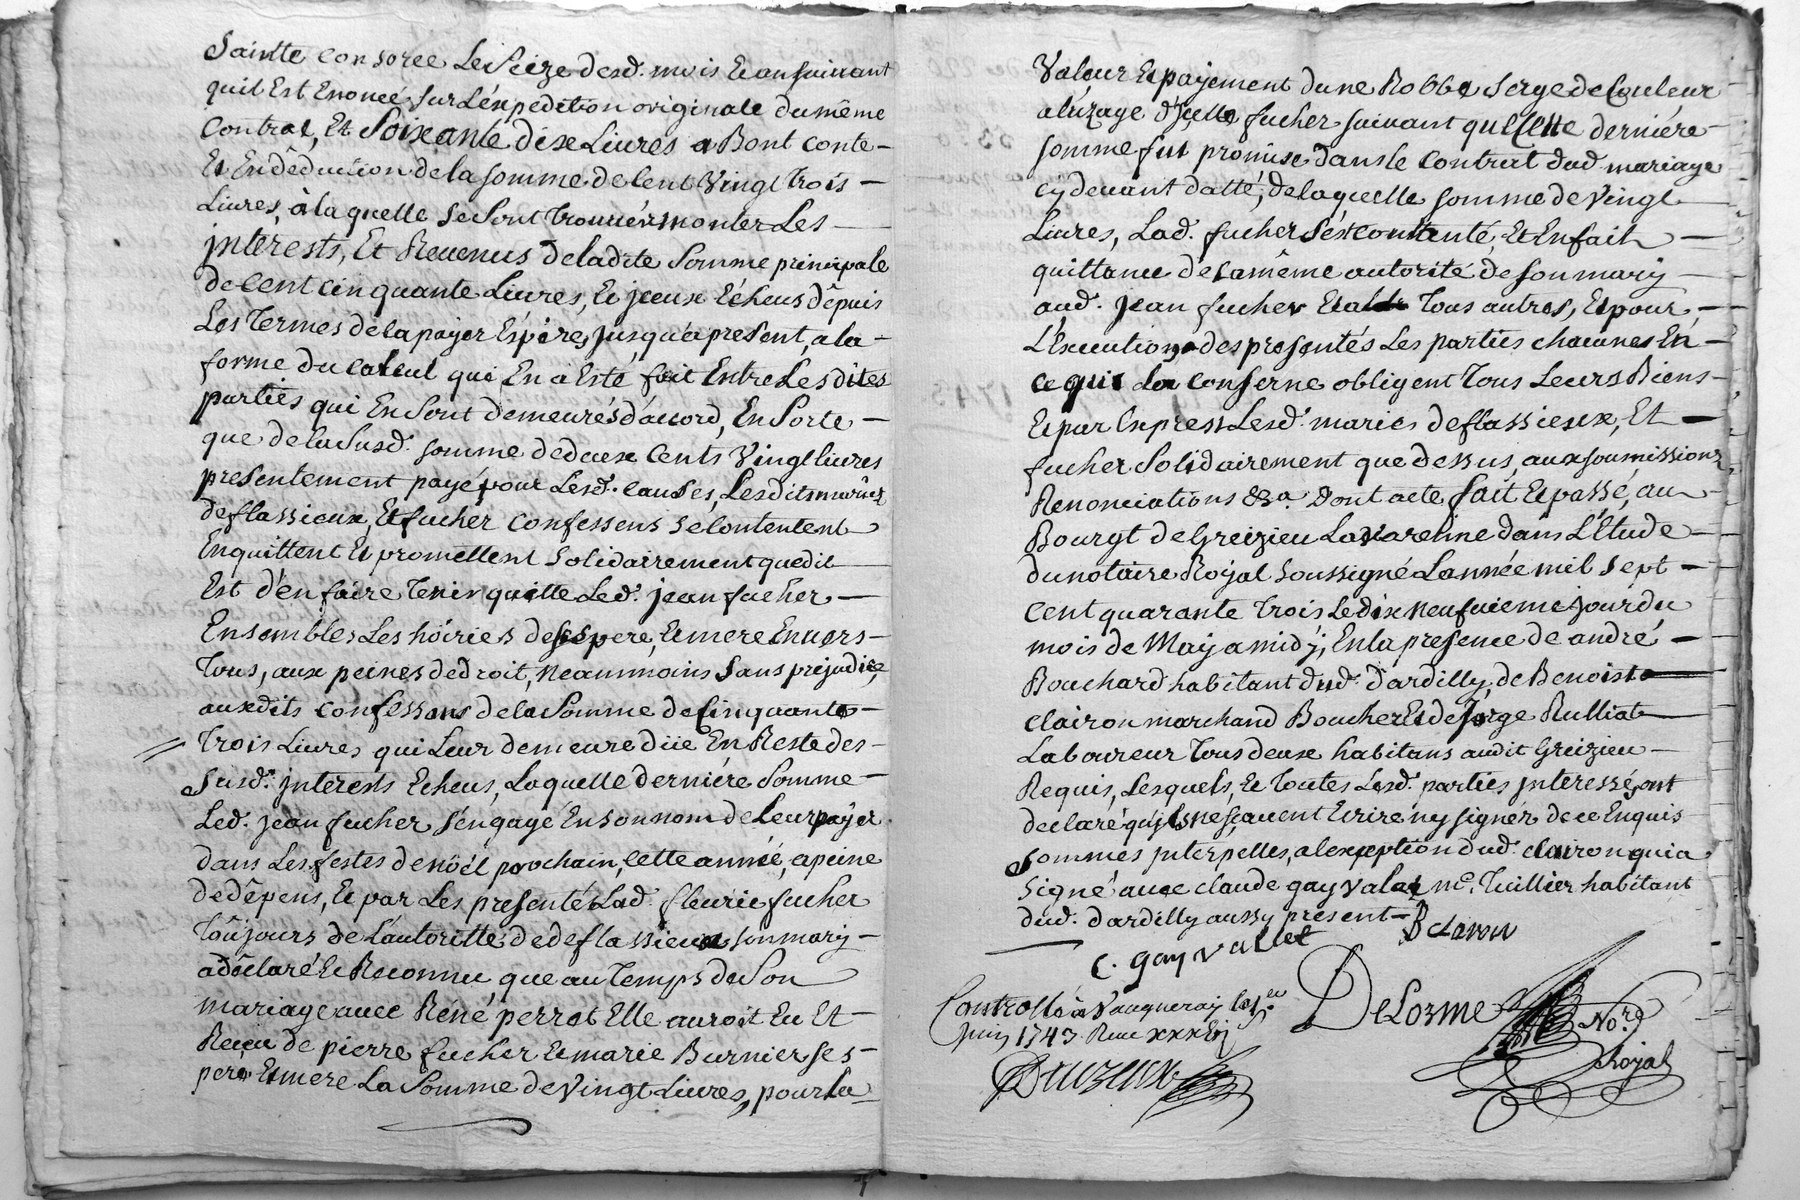 Saintte Consorce Le Seize desd. mois Et an suivant
quil Est Enoncé sur L'éxpedition originale du même
Contrat, Et Soixante dixe Livres a Bont conte
Et En dêduction de la somme de Cent Vingt Trois
Livres, à la quelle se sont Trouvés monter Les
jnterests, Et Revenus de ladite Somme principale
de Cent cinquante Livres, Et jceux Echeus dêpuis
Les Termes de la payer Expirés, jusqu'a present, a la
forme du calcul qui En à Esté fait Entre Les dites
parties qui En sont demeurés d'accord, En sorte
que de la Susd. somme de deux Cents Vingt livres
presentement payé pour Lesd. causes, Lesdits mariés
deflassieux, Et fucher Confessens se Contentent
En quittent Et promettent Solidairement que dit
Est d'en faire Tenir quitte Led. jean fucher
Ensembles Les hoiries de ses pere, Et mere Envers
Tous, aux peines de droit, neaumoins Sans prejudice
ausdits Confessans de la Somme de Cinquante
Trois Livres qui Leur demeure düe En Reste des
Susd. jnterests Echeus, Laquelle derniére Somme
Led. jean fucher s'éngagé En son nom de Leur payér
dans Les festes de nöél prochain, Cette année, a peine
de dêpens, Et par Les presenté Lad. fleurie fucher
Toûjours de L'autoritté de deflassieux son mary
a dêclaré Et Reconnu que au Temps de Son
mariage avec Réné perrot Elle auroit Eu Et
Reçeu de pierre fucher Et marie Burnier ses
pere Et mere La Somme de Vingt Livres, pour la
Valeur Et payement dune Robbe Serge de Couleur
a l'úzage d'jcelle fucher suivant que Cette derniére
somme fut promise dans le Contrat dud. mariage
cy devant datté, de laquelle somme de Vingt
Livres, Lad. fucher S'ést contenté, Et En fait
quittance de la même autorité de son mary
aud. jean fucher Et a Tous autres, Et pour
L'Execution des presentés Les parties chacunes En
ce qui La Conserne obligent Tous Leurs Biens
Et par Exprest Lesd. mariés deflassieux, Et
fucher Solidairement que dessus, aux soumissions
Renonciations &a. dont acte fait Et passé, au
Bourgt de Greizieu La Varenne dans L'Étude
du notaire Roÿal soussigné L'année mil Sept
Cent quarante Trois Le dix neufvieme jour du
mois de May a midÿ, En la presence de andré
Bouchard habitant dud. dardilly, de Benoist
Clairon marchand Boucher Et de Jorge Rulliat
Laboureur Tous deux habitans audit Greizieu
Requis, Lesquels, Et Toutes Lesd. parties jnteressé, ont
declaré qu'jls ne sçavent Ecrire ny signér de ce Enquis
Sommes jnterpelles, a l'exception dud. clairon qui a
Signé avec claude gay valet me. Tuillier habitant
dud. dardilly aussy present
B Clairon
C. gay vallet
Controllé à Vaugneray le 1er
juin 1743 Reçu
DeLorme Nore
Royal